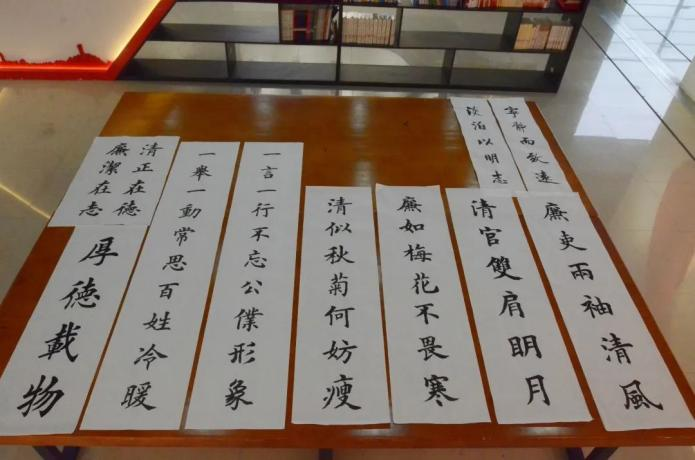 寧靜而致遠
淡泊以明志
廉吏兩袖清風
清官雙肩明月
廉如梅花不畏寒
清似秋菊何妨瘦
一言一行不忘公僕形象
一舉一動常思百姓冷暖
清正在德
廉潔在志
厚德載物